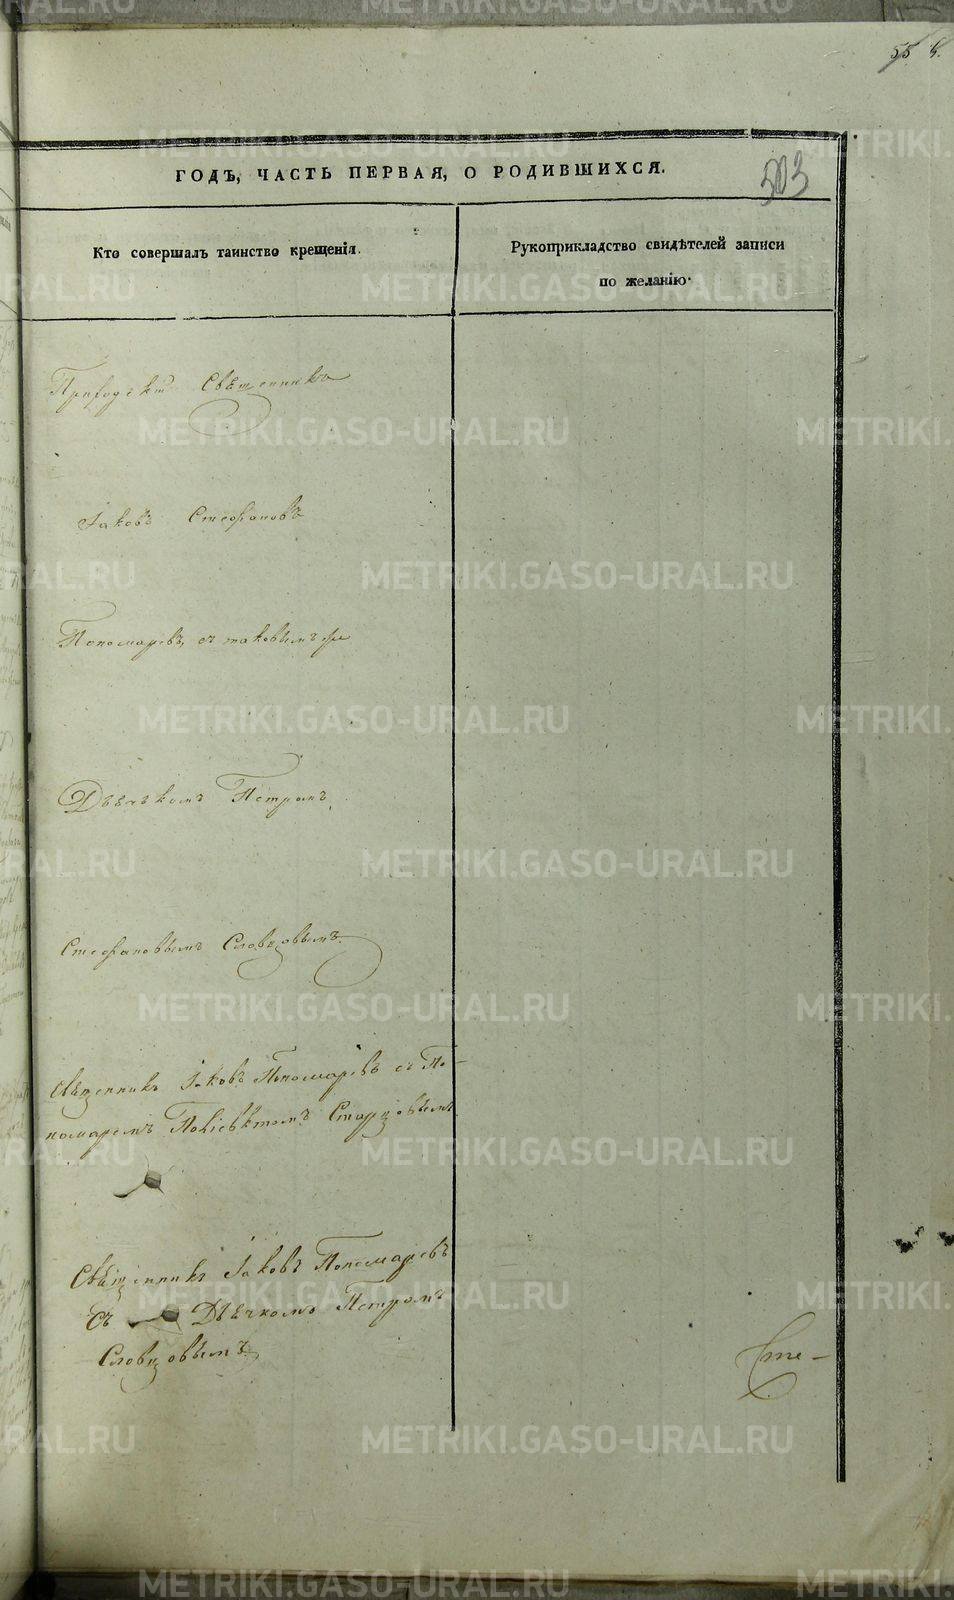 55
503
ГОДЪ, ЧАСТЬ ПЕРВАЯ, О РОДИВШИХСЯ.
Кто совершалъ таинство крещенія.
Рукоприкладство свидѣтелей записи
по желанію.
Приходскій Священникъ
Іаковъ Стефановъ
Пономаревъ, съ таковымъ же
Дьячкомъ Петромъ
Стефановымъ Словцовымъ.
Священникъ Іаковъ Пономаревъ съ По-
номаремъ Поліевктомъ Старцовымъ
Священникъ Іаковъ Пономаревъ
Съ Дьячкомъ Петромъ
Словцовымъ
Сте-
METRIKI.GASO-URAL.RU